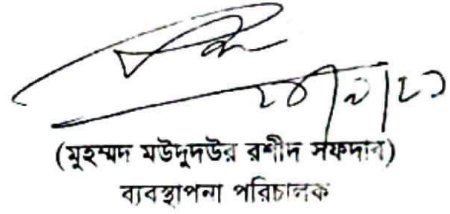 (মুহম্মদ মউদুদউর রশীদ সফদার)
ব্যবস্থাপনা পরিচালক